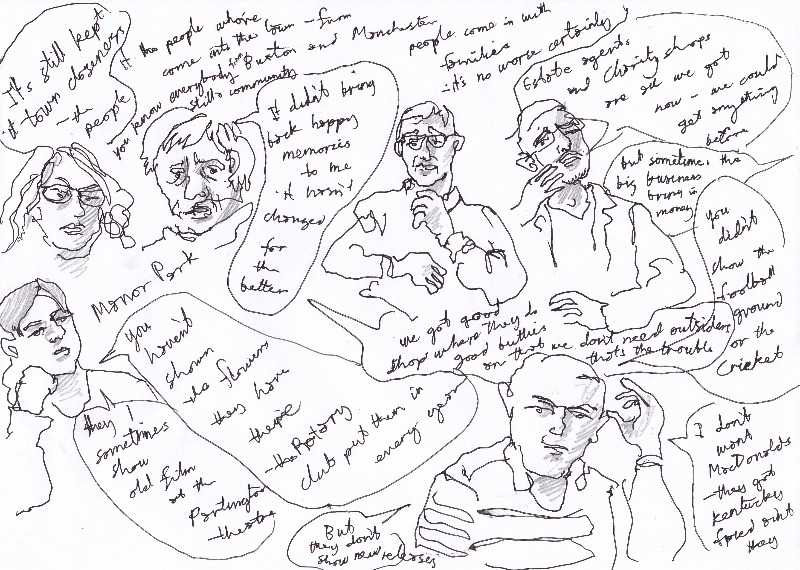 It's still kept
it town closeness
– the
people
it the people who're
come into the town – from
you know everybody Buxton and Manchester
still a community
people come in with
families
– it's no worse certainly
Estate agents
and Charity shops
are all we got
now – we could
get anything
before
but sometimes the
big business
bring in
money
it didn't bring
back happy
memories
to me
it hasn't
changed
for
the
better
you
didn't
show the
football
ground
or the
Cricket
Manor Park
we got good
shop where they do
good butties
on that we don't need outsiders
that's the trouble
you
haven't
shown
the flowers
they have
there
– the Rotary
club put them in
every year
they
sometimes
show
old film
at the
Partington
theatre
But
they don't
show new releases
I don't
want
MacDonalds
– they got
Kentucky
fried aint
they